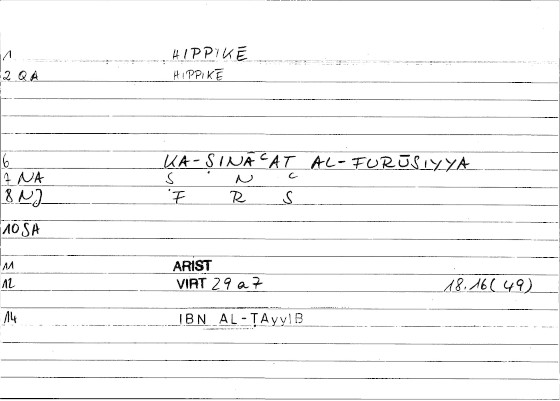 1 HIPPIKĒ
2 QA HIPPIKĒ
6 KA-ṢINĀʿAT AL-FURŪSIYYA
7 NA Ṣ N ʿ
8 NJ F R S
10 SA
11 ARIST
12 VIRT 29 a 7 18.16(49)
14 IBN AL-ṬAyyIB